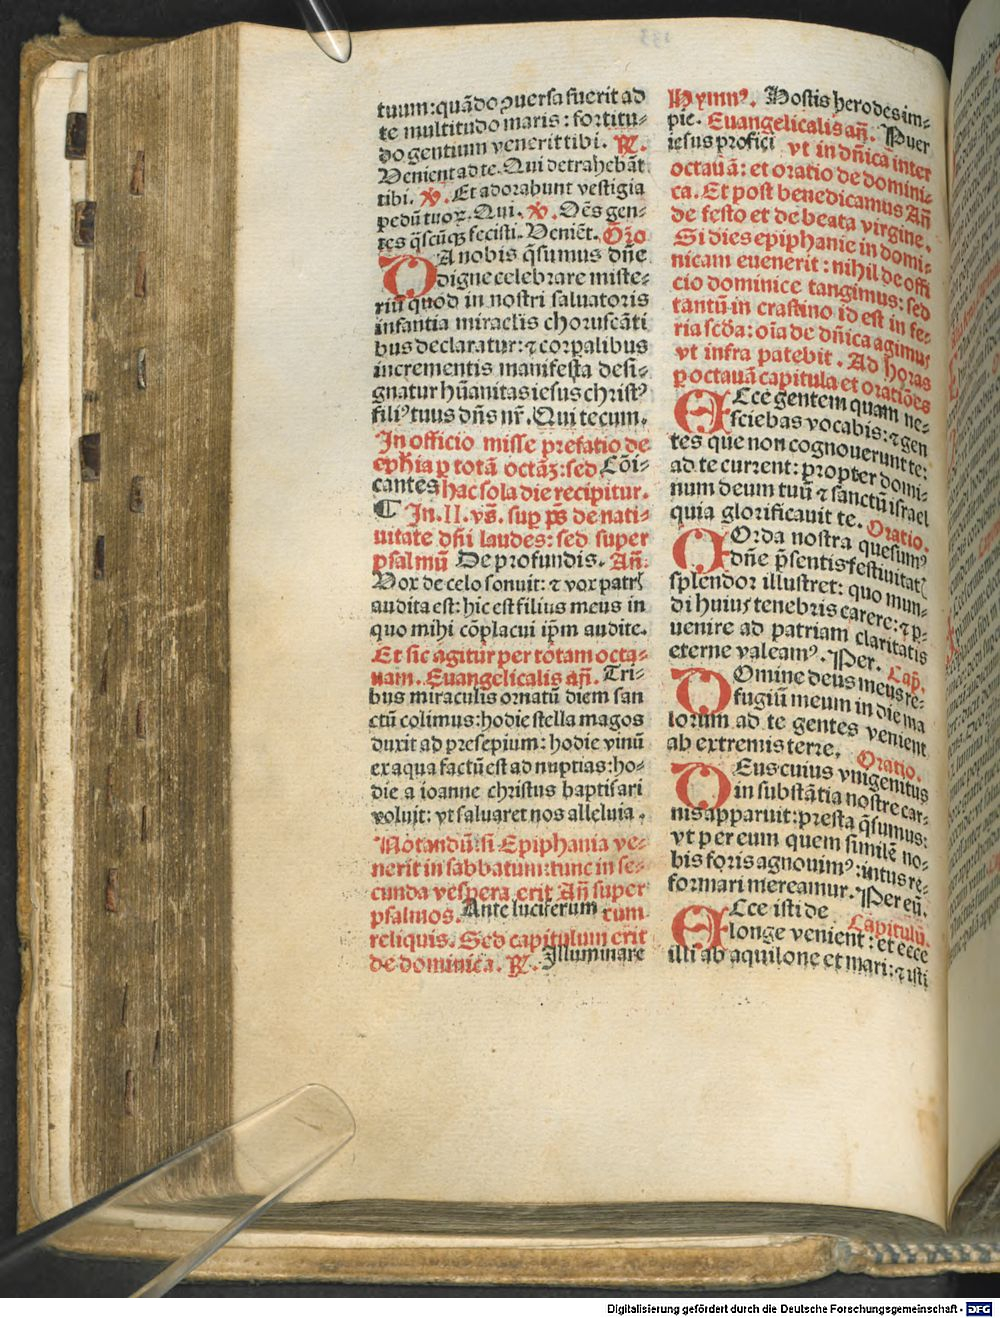 tuum: quãdo ꝯuersa fuerit ad
te multitudo maris: fortitu-
do gentium venerit tibi. ℟.
Venient ad te. Qui detrahebãt
tibi. ℣. Et adorabunt vestigia
pedũ tuoꝝ. Qui. ℣. Oẽs gen-
tes q̃scũqꝫ fecisti. Veniẽt. Oꝛ̃o
DA nobis q̃sumus dñe
digne celebrare miste-
riũ quod in nostri saluatoris
infantia miraclis choruscãti
bus declaratur: ⁊ corꝑalibus
incrementis manifesta desi-
gnatur hũanitas iesus christꝰ
filiꝰ tuus dñs nr̃. Qui tecum.
In officio misse prefatio de
eph̃ia ꝑ totã octãꝫ: sed Cõi-
cantes hac sola die recipitur.
¶ In. II. vs̃. suꝑ ps̃ de nati-
uitate dñi laudes: sed super
psalmũ De profundis. Añ.
Vox de celo sonuit: ⁊ vox patrꝭ
audita est: hic est filius meus in
quo mihi cõplacui ip̃m audite.
Et sic agitur per totam octa-
uam. Euangelicalis añ. Tri-
bus miraculis ornatũ diem san
ctũ colimus: hodie stella magos
duxit ad presepium: hodie vinũ
ex aqua factũ est ad nuptias: ho-
die a ioanne christus baptisari
voluit: vt saluaret nos alleluia.
Notandũ: si Epiphania ve-
nerit in sabbatum: tunc in se-
cunda vespera erit Añ super
psalmos. Ante luciferum cum
reliquis. Sed capitulum erit
de dominica. ℟. Illuminare
Hymnꝰ. Hostis herodes im-
pie. Euangelicalis añ. Puer
iesus profici vt in dñica inter
octauã: et oratio de domini-
ca. Et post benedicamus Añ
de festo et de beata virgine.
Si dies epiphanie in domi-
nicam euenerit: nihil de offi
cio dominice tangimus: sed
tantũ in crastino id est in fe-
ria scđa: oĩa de dñica agimus
vt infra patebit. Ad horas
ꝑ octauã capitula et oratiões
ECce gentem quam ne-
sciebas vocabis: ⁊ gen
tes que non cognouerunt te:
ad te current: propter domi-
num deum tuũ ⁊ sanctũ israel
quia glorificauit te. Oratio.
COrda nostra quesumꝰ
dñe p̃sentis festiuitatꝭ
splendor illustret: quo mun-
di huius tenebris carere: ⁊ ꝑ-
uenire ad patriam claritatis
eterne valeamꝰ. Per. Cap̃.
DOmine deus meus re-
fugiũ meum in die ma
lorum ad te gentes venient
ab extremis terre. Oratio.
DEus cuius vnigenitus
in substãtia nostre car-
nis apparuit: presta q̃sumus:
vt per eum quem similẽ no-
bis foris agnouimꝰ: intus re-
formari mereamur. Per eũ.
ECce isti de Capitulũ.
longe venient: et ecce
illi ab aquilone et mari: ⁊ isti
Digitalisierung gefördert durch die Deutsche Forschungsgemeinschaft - DFG